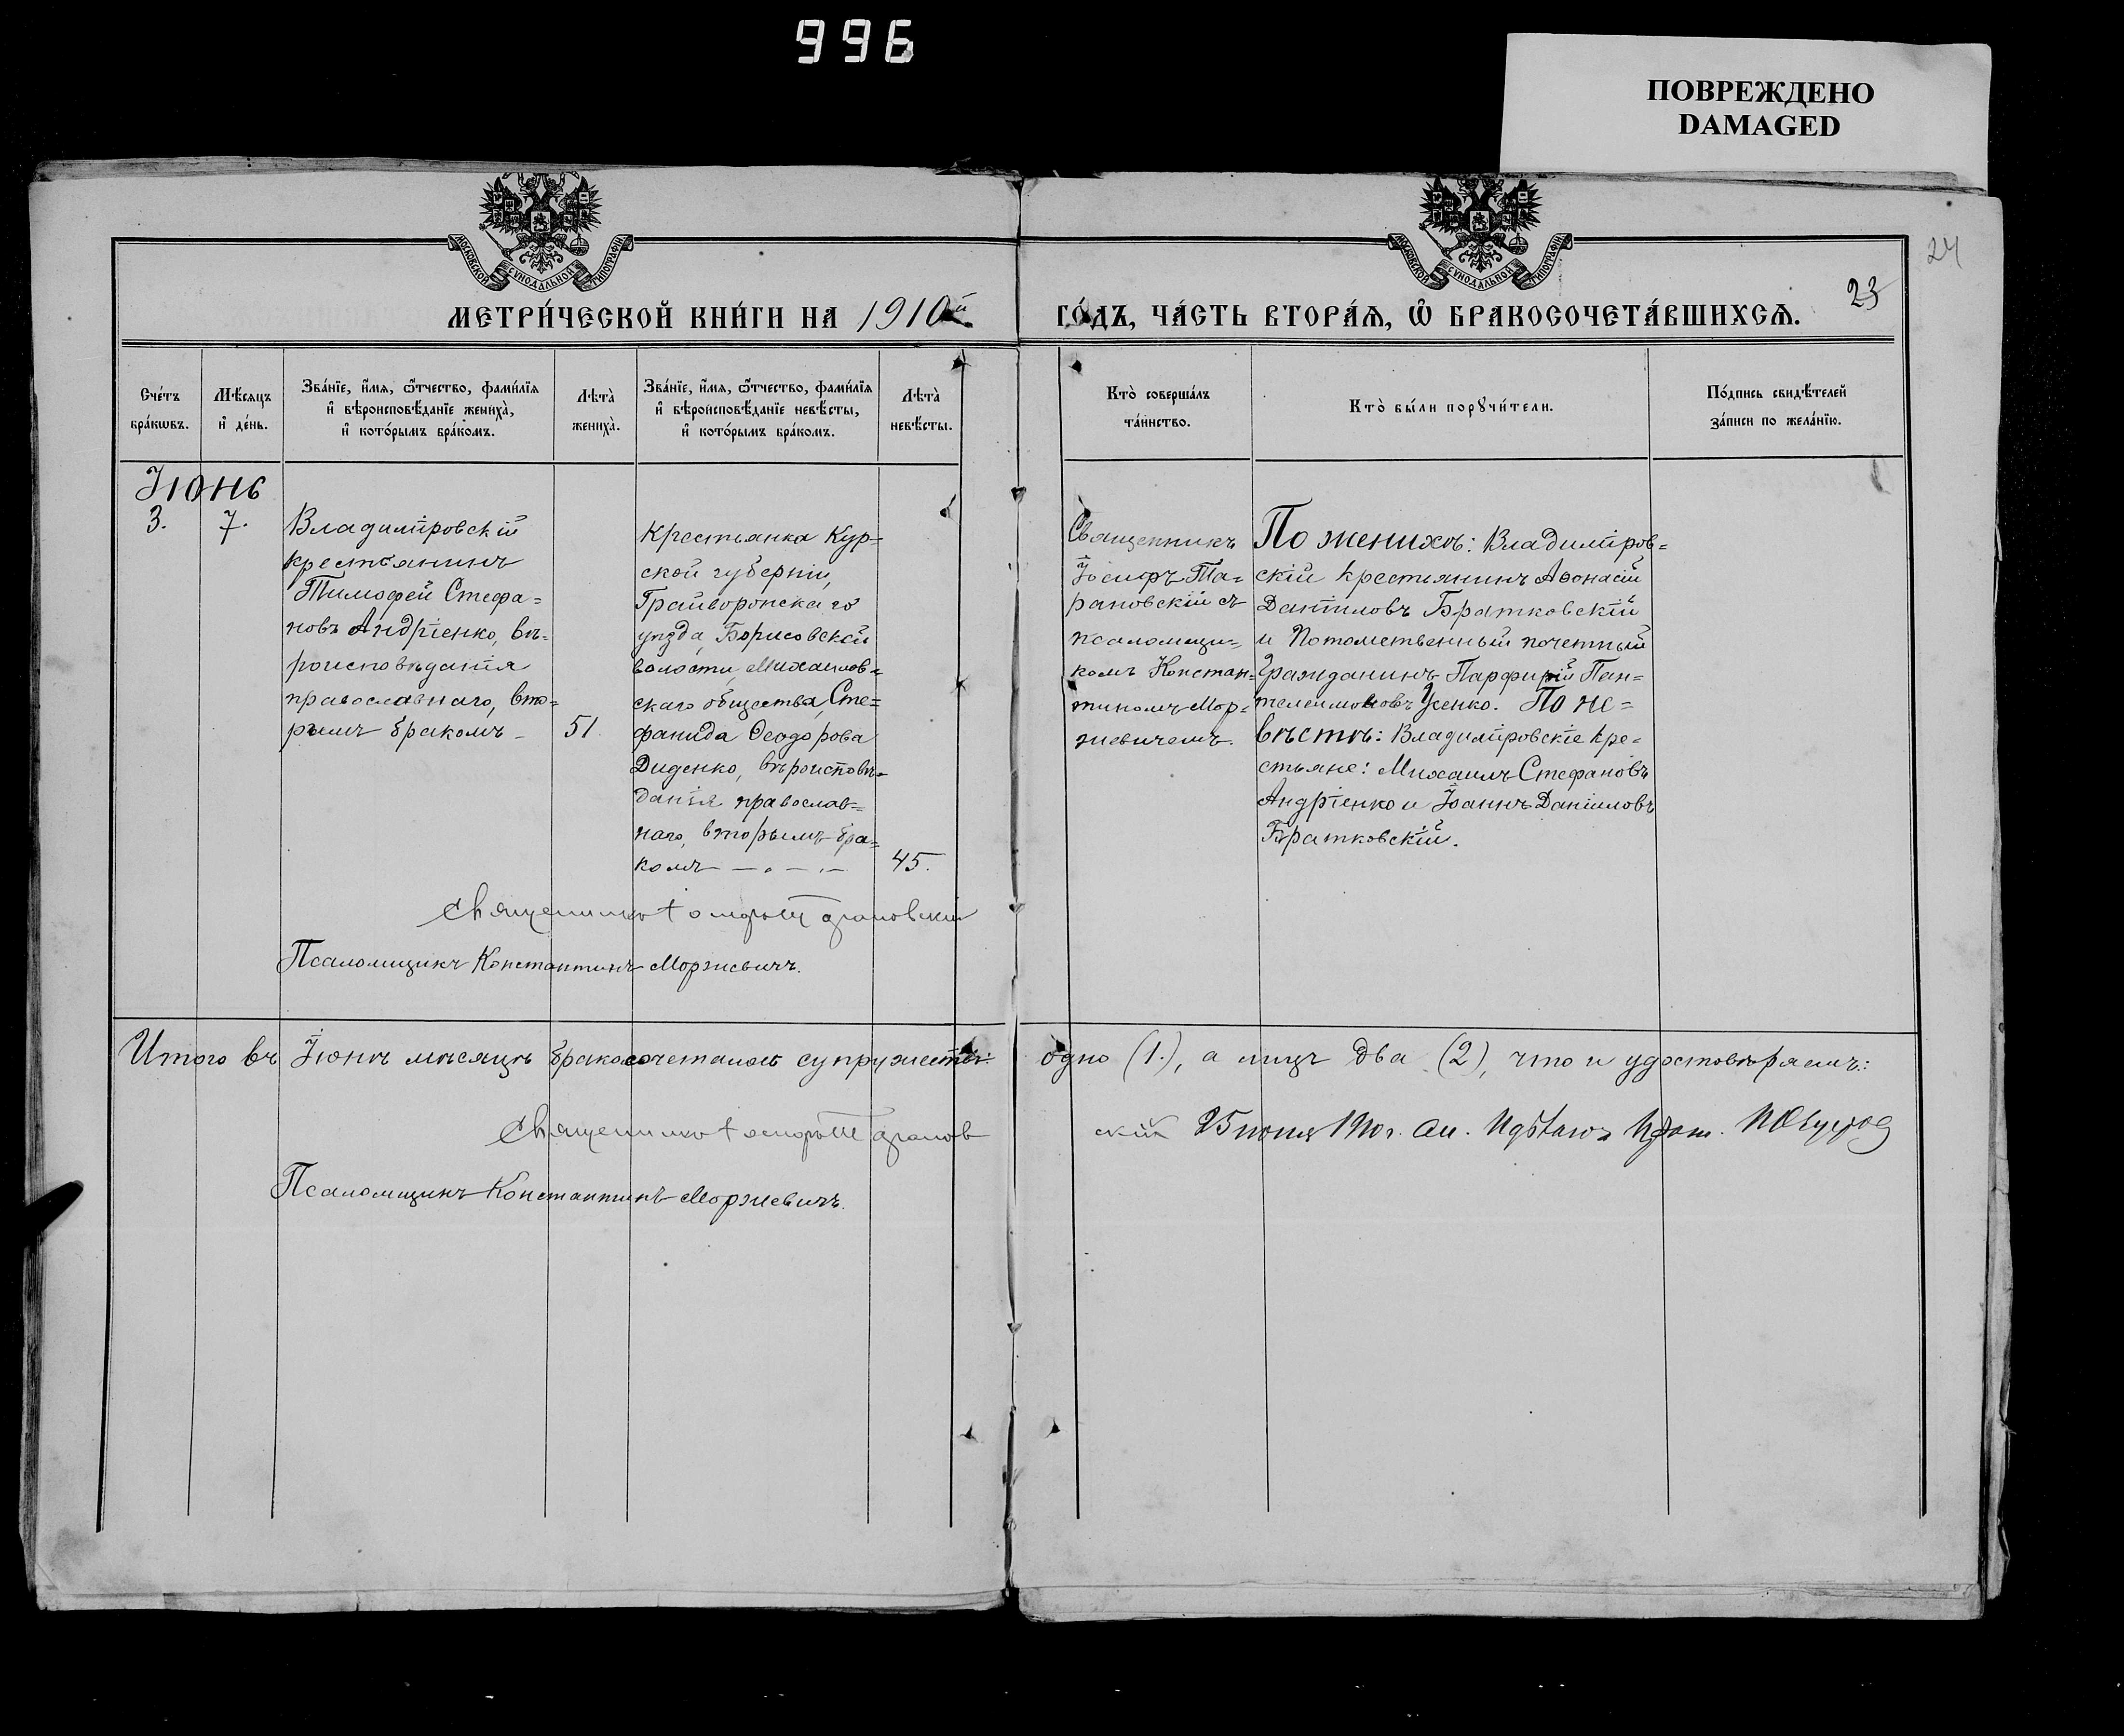 996
ПОВРЕЖДЕНО
DAMAGED
МОСКОВСКОЙ СУНОДАЛЬНОЙ ТИПОГРАФІИ
МОСКОВСКОЙ СУНОДАЛЬНОЙ ТИПОГРАФІИ
24
23
МЕТРИ́ЧЕСКОЙ КНИ́ГИ НА 1910й
ГО́ДЪ, ЧА́СТЬ ВТОРА́Ѧ, Ѡ҆ БРАКОСОЧЕТА́ВШИХСѦ.
Сче́тъ
бра́кѡвъ.
Мѣ́сяцъ
и҆ де́нь.
Зва́нїе, и҆́мя, ѻ҆́тчество, фами́лїя
и҆ вѣроисповѣ́данїе жениха̀,
и҆ кото́рымъ бра́комъ.
Лѣта̀
жениха̀.
Зва́нїе, и҆́мя, ѻ҆́тчество, фами́лїя
и҆ вѣроисповѣ́данїе невѣ́сты,
и҆ кото́рымъ бра́комъ.
Лѣта̀
невѣ́сты.
Кто̀ соверша́лъ
та́инство.
Кто̀ бы́ли порꙋчи́тели.
По́дпись свидѣ́телей
за́писи по жела́нїю.
Іюнь
3.
7.
Владиміровскій
крестьянинъ
Тимофей Стефа=
новъ Андріенко, вѣ=
роисповѣданія
православнаго, вто=
рымъ бракомъ –
51
Крестьянка Кур=
ской губерніи,
Грайворонскаго
уѣзда, Борисовской
волости, Михайлов=
скаго общества, Сте=
фанида Ѳеодорова
Диденко, вѣроисповѣ=
данія православ=
наго, вторымъ бра=
комъ
45.
Священникъ
Іосифъ Та=
рановскій съ
псаломщи=
комъ Констан=
тиномъ Мор=
жевичемъ.
По женихѣ: Владиміров=
скій крестьянинъ Аѳонасій
Даніиловъ Братковскій
и Потомственный почетный
Гражданинъ Парфирій Пан=
телеимоновъ Усенко. По не=
вѣстѣ: Владимірoвскіе кре=
стьяне: Михаилъ Стефановъ
Андріенко и Іоаннъ Даніиловъ
Братковскій.
Священникъ Іосифъ Тарановскій
Псаломщикъ Константинъ Моржевичъ.
Итого въ Іюнѣ мѣсяцѣ бракосочеталось супружествъ:
одно (1.), а лицъ два (2), что и удостовѣряемъ:
Священникъ Іосифъ Таранов
скій 25 іюня 1910 г.
Псаломщикъ Константинъ Моржевичъ.